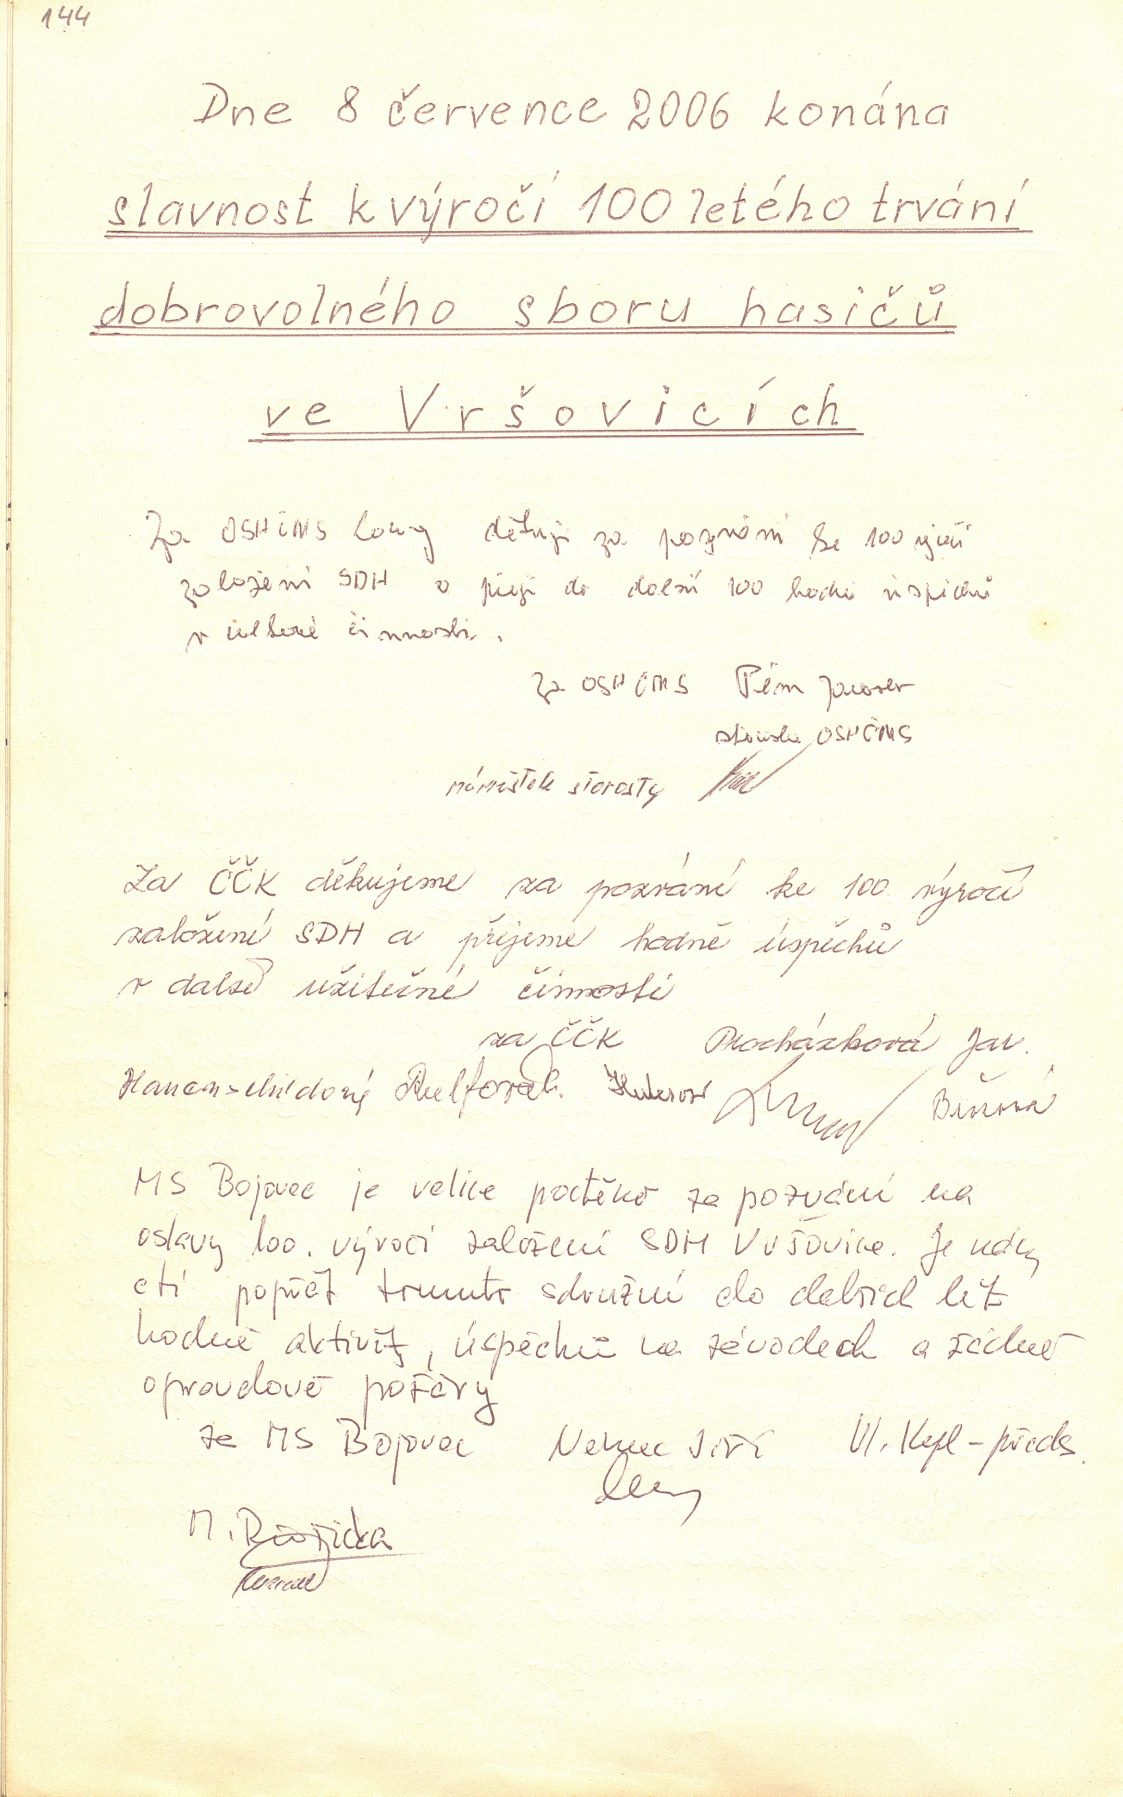 144
Dne 8 července 2006 konána
slavnost k výročí 100 letého trvání
dobrovolného sboru hasičů
ve Vršovicích
Za OSH ČMS Louny děkuji za pozvání ke 100 výročí
založení SDH a přeji do další 100 hodně úspěchů
v činnosti.
Za OSH ČMS
starosta OSH ČMS
náměstek starosty
Za ČČK děkujeme za pozvání ke 100 výročí
založení SDH a přejeme hodně úspěchů
v dalsě užitečné činnosti
za ČČK Procházková Jar.
MS Bojovec je velice poctěno za pozvání na
oslavy 100. vyročí založení SDH Vršovice. Je nám
ctí popřát tomuto sdružní do dalších let
hodně aktivit, úspěchů na závodech a žádné
opravdové požáry
za MS Bojovec Nemec Jiří Vl. Kepl - předs.
M. Růžička